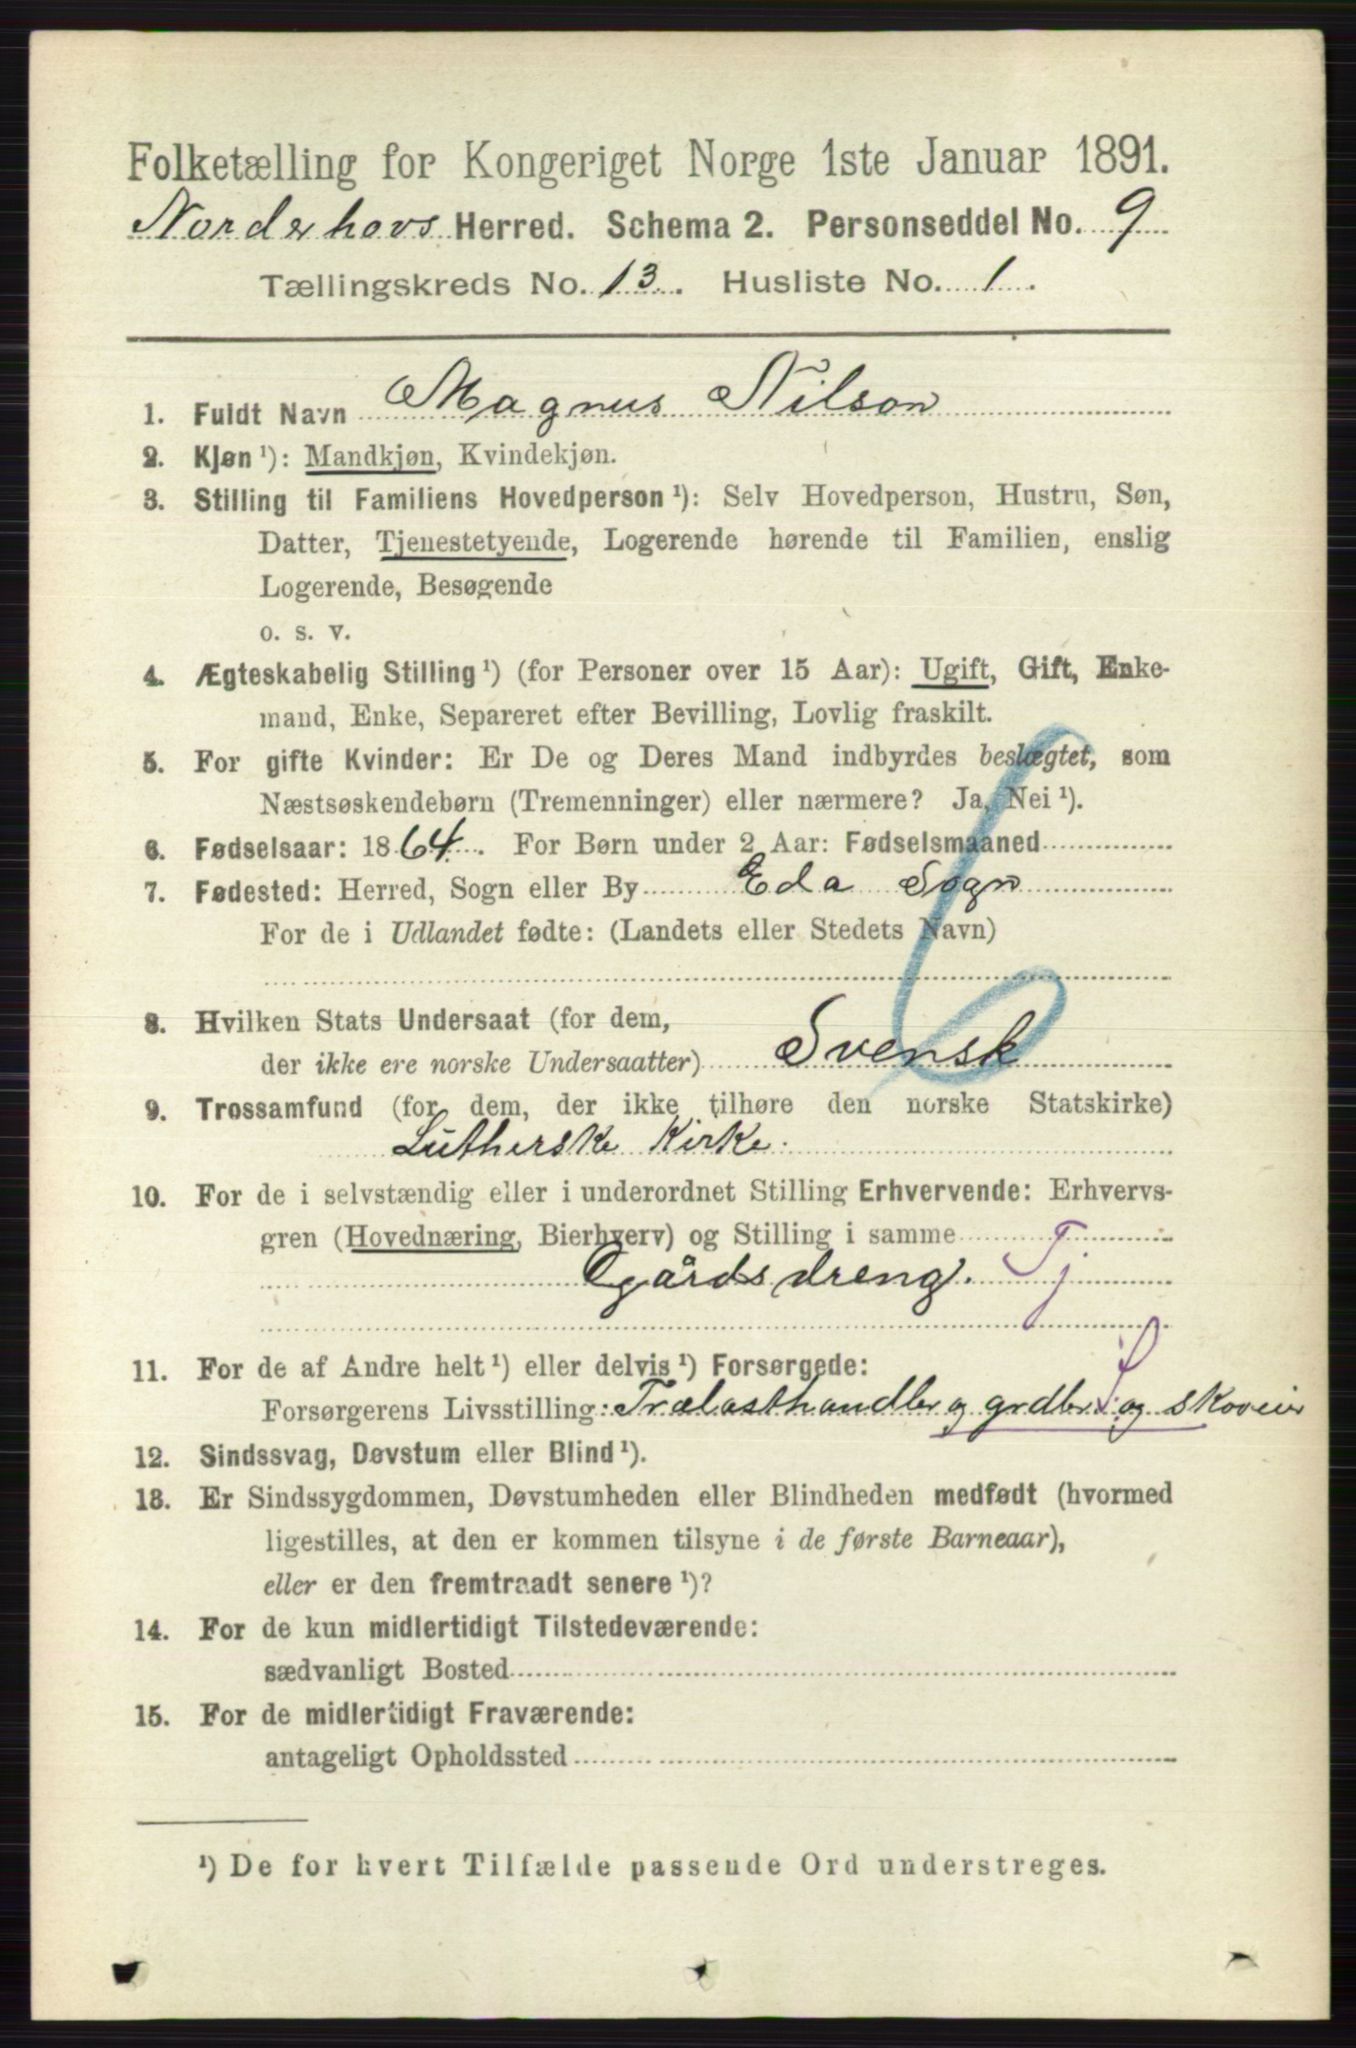 Folketælling for Kongeriget Norge 1ste Januar 1891.
Norderhovs Herred. Schema 2. Personseddel No. 9
Tællingskreds No. 13. Husliste No. 1.
1. Fuldt Navn Magnus Nilson
2. Kjøn ¹): Mandkjøn, Kvindekjøn.
3. Stilling til Familiens Hovedperson ¹): Selv Hovedperson, Hustru, Søn,
Datter, Tjenestetyende, Logerende hørende til Familien, enslig
Logerende, Besøgende
o. s. v.
4. Ægteskabelig Stilling ¹) (for Personer over 15 Aar): Ugift, Gift, Enke-
mand, Enke, Separeret efter Bevilling, Lovlig fraskilt.
5. For gifte Kvinder: Er De og Deres Mand indbyrdes beslægtet, som
Næstsøskendebørn (Tremenninger) eller nærmere? Ja, Nei ¹).
6. Fødselsaar: 1864. For Børn under 2 Aar: Fødselsmaaned
7. Fødested: Herred, Sogn eller By Eda Sogn
For de i Udlandet fødte: (Landets eller Stedets Navn)
8. Hvilken Stats Undersaat (for dem,
der ikke ere norske Undersaatter) Svensk
9. Trossamfund (for dem, der ikke tilhøre den norske Statskirke)
Lutherske Kirke.
10. For de i selvstændig eller i underordnet Stilling Erhvervende: Erhvervs-
gren (Hovednæring, Bierhverv) og Stilling i samme Tj
Gårdsdreng.
11. For de af Andre helt ¹) eller delvis ¹) Forsørgede:
Forsørgerens Livsstilling: Trælasthandler og grdbr og skoveier
12. Sindssvag, Døvstum eller Blind ¹).
13. Er Sindssygdommen, Døvstumheden eller Blindheden medfødt (hvormed
ligestilles, at den er kommen tilsyne i de første Barneaar),
eller er den fremtraadt senere ¹)?
14. For de kun midlertidigt Tilstedeværende:
sædvanligt Bosted
15. For de midlertidigt Fraværende:
antageligt Opholdssted
¹) De for hvert Tilfælde passende Ord understreges.